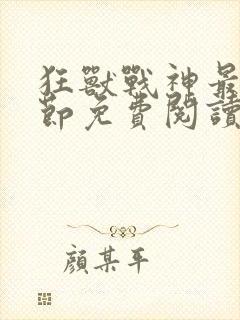 狂獸戰神最
節免費閱讀
顏某平